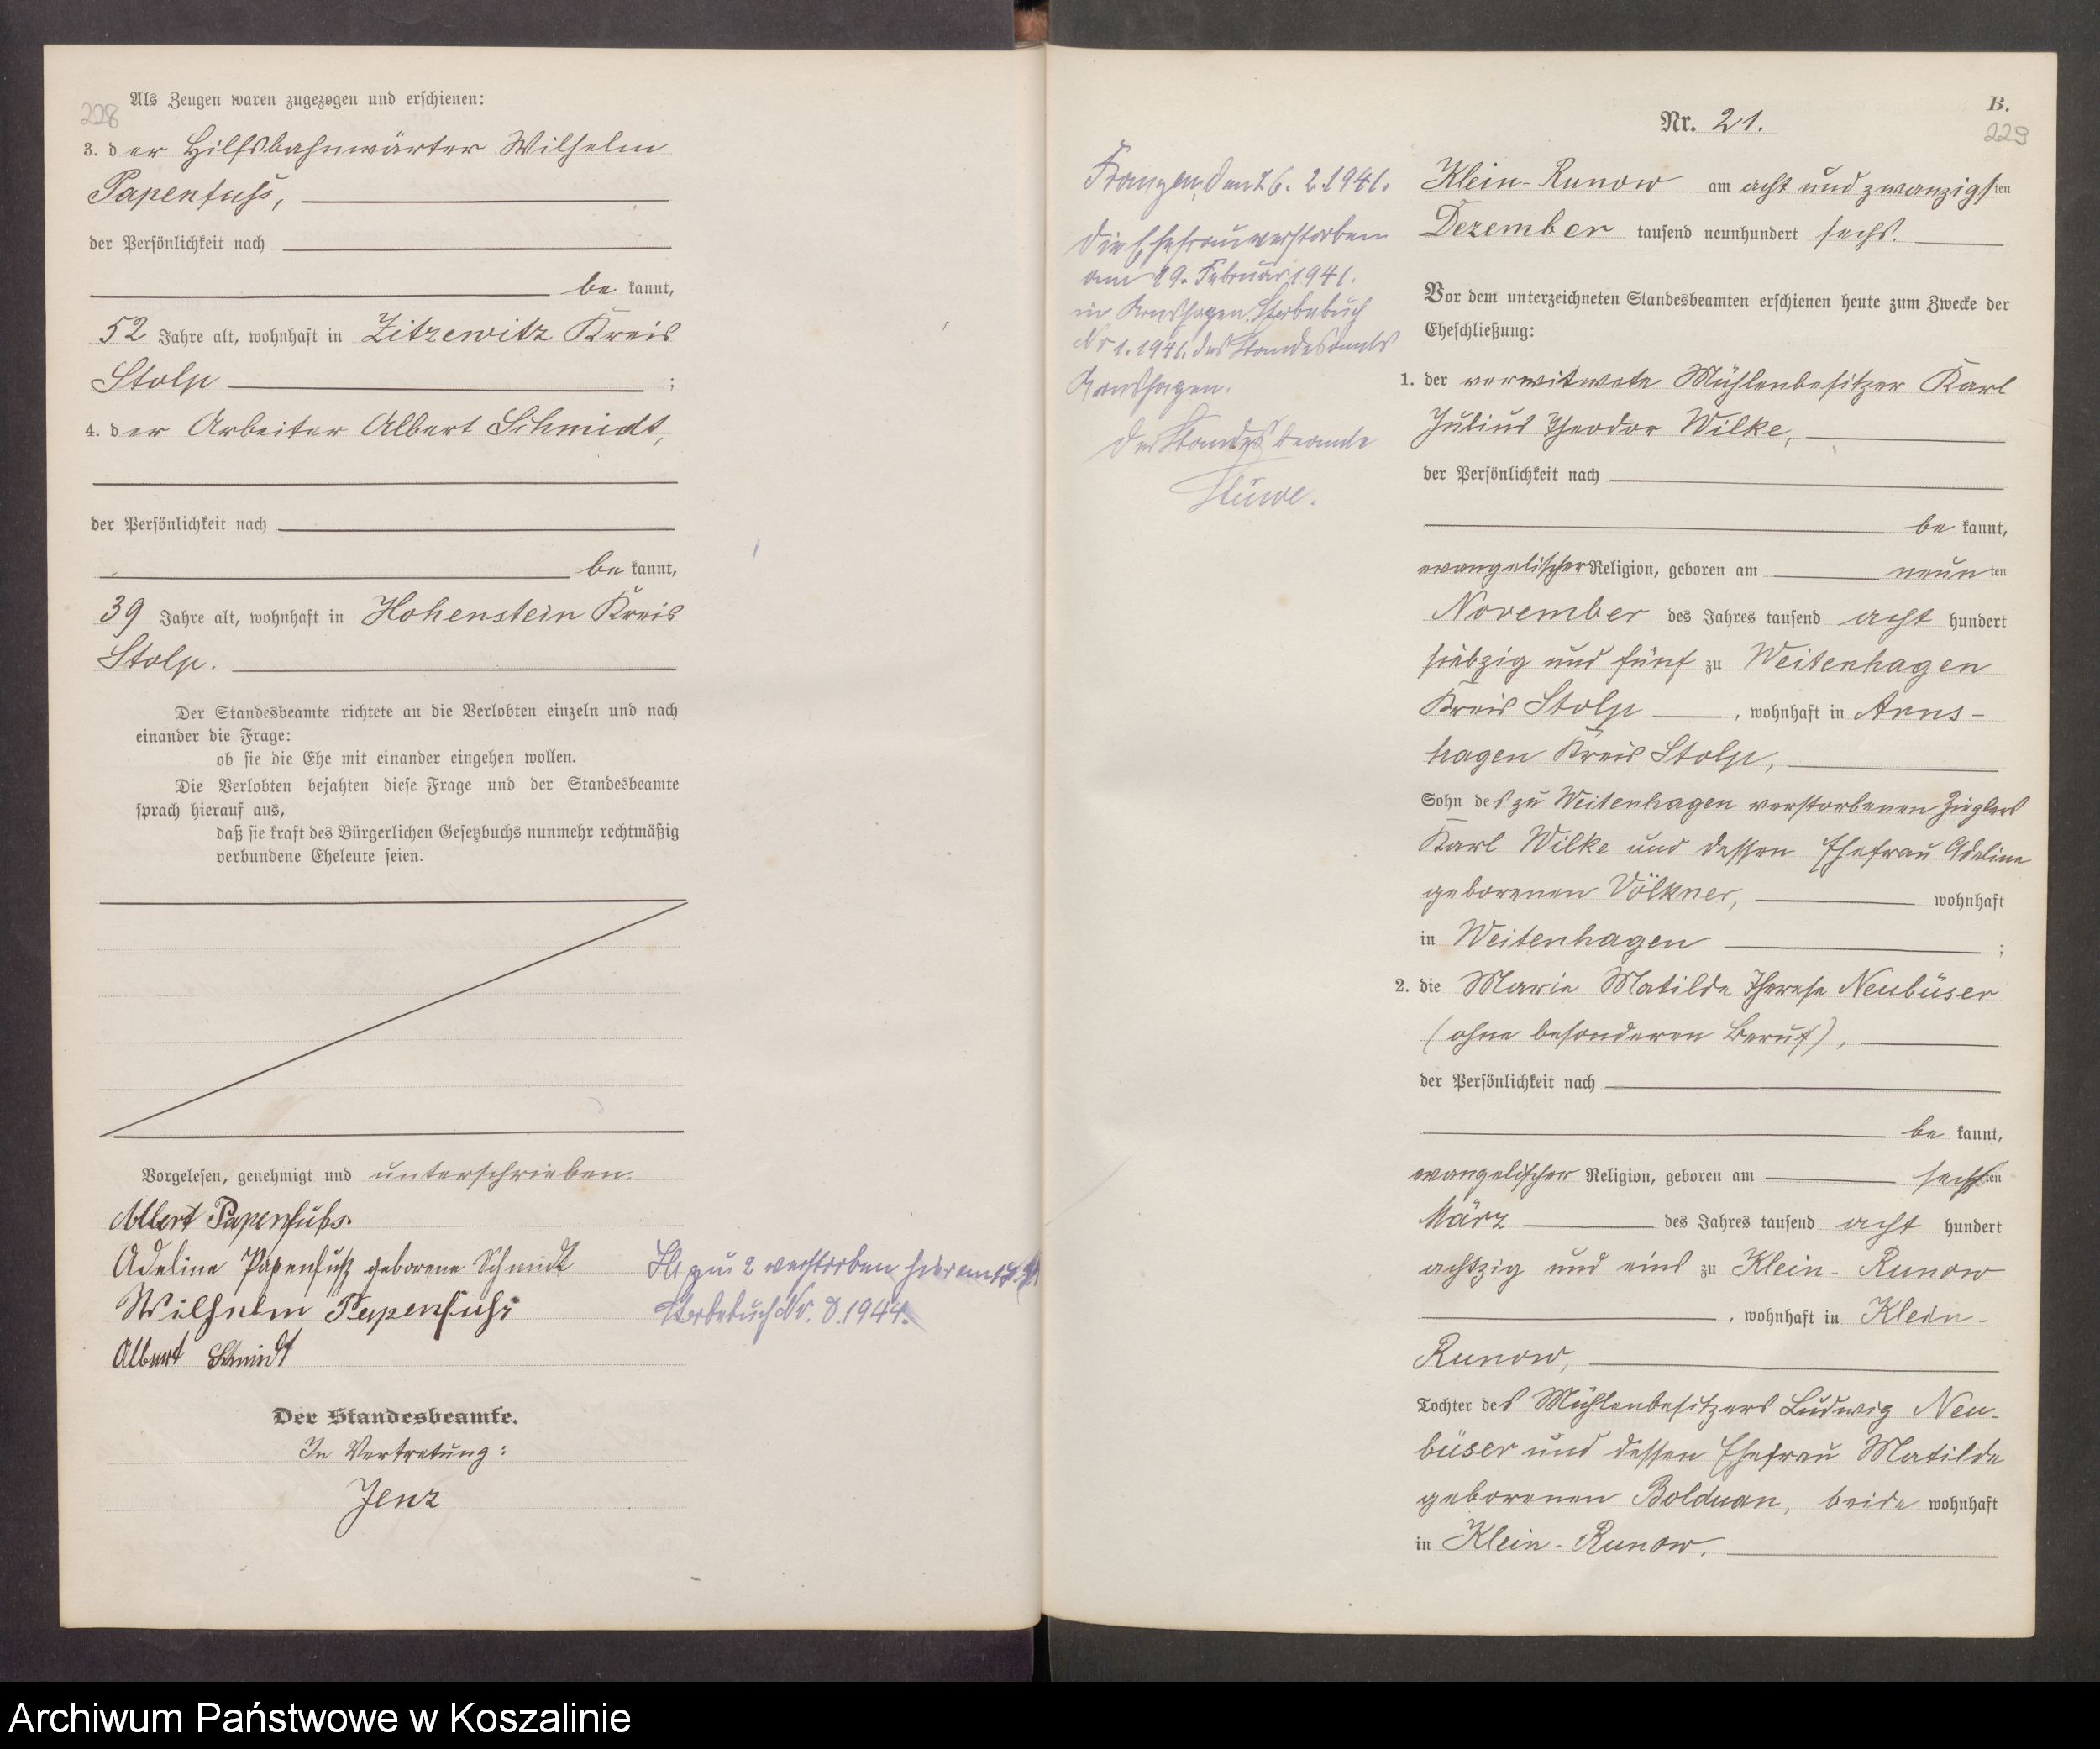 228
Als Zeugen waren zugezogen und erschienen:
3. der Hilfsbahnwärter Wilhelm
Papenfuß,
der Persönlichkeit nach
be kannt,
52 Jahre alt, wohnhaft in Zitzewitz Kreis
Stolp ;
4. der Arbeiter Albert Schmidt,
der Persönlichkeit nach
be kannt,
39 Jahre alt, wohnhaft in Hohenstein Kreis
Stolp.
Der Standesbeamte richtete an die Verlobten einzeln und nach
einander die Frage:
ob sie die Ehe mit einander eingehen wollen.
Die Verlobten bejahten diese Frage und der Standesbeamte
sprach hierauf aus,
daß sie kraft des Bürgerlichen Gesetzbuchs nunmehr rechtmäßig
verbundene Eheleute seien.
Vorgelesen, genehmigt und unterschrieben.
Albert Papenfuß
Adeline Papenfuß geborene Schmidt
Wilhelm Papenfuß
Albert Schmidt
zu 2 verstorben
Sterbebuch Nr. 8.1944.
Der Standesbeamte.
In Vertretung:
Jenz
B.
229
Nr. 21.
Klein-Runow am acht und zwanzigsten
Dezember tausend neunhundert sechs.
Vor dem unterzeichneten Standesbeamten erschienen heute zum Zwecke der
Eheschließung:
1. der verwitwete Mühlenbesitzer Karl
Julius Theodor Wilke,
der Persönlichkeit nach
be kannt,
evangelischer Religion, geboren am neunten
November des Jahres tausend acht hundert
siebzig und fünf zu Weitenhagen
Kreis Stolp , wohnhaft in Arns-
hagen Kreis Stolp,
Sohn des zu Weitenhagen verstorbenen Zieglers
Karl Wilke und dessen Ehefrau Adeline
geborenen Völkner, wohnhaft
in Weitenhagen ;
2. die Marie Matilde Therese Neubüser
(ohne besonderen Beruf),
der Persönlichkeit nach
be kannt,
evangelischer Religion, geboren am sechsten
März des Jahres tausend acht hundert
achtzig und eins zu Klein-Runow
, wohnhaft in Klein-
Runow,
Tochter des Mühlenbesitzers Ludwig Neu-
büser und dessen Ehefrau Matilde
geborenen Bolduan, beide wohnhaft
in Klein-Runow.
den 26. 2. 1941.
Die Ehefrau verstorben
am 19. Februar 1941.
in Arnshagen. Sterbebuch
Nr 1. 1941. des Standesamts
Arnshagen.
Der Standesbeamte
Stüwe.
Archiwum Państwowe w Koszalinie